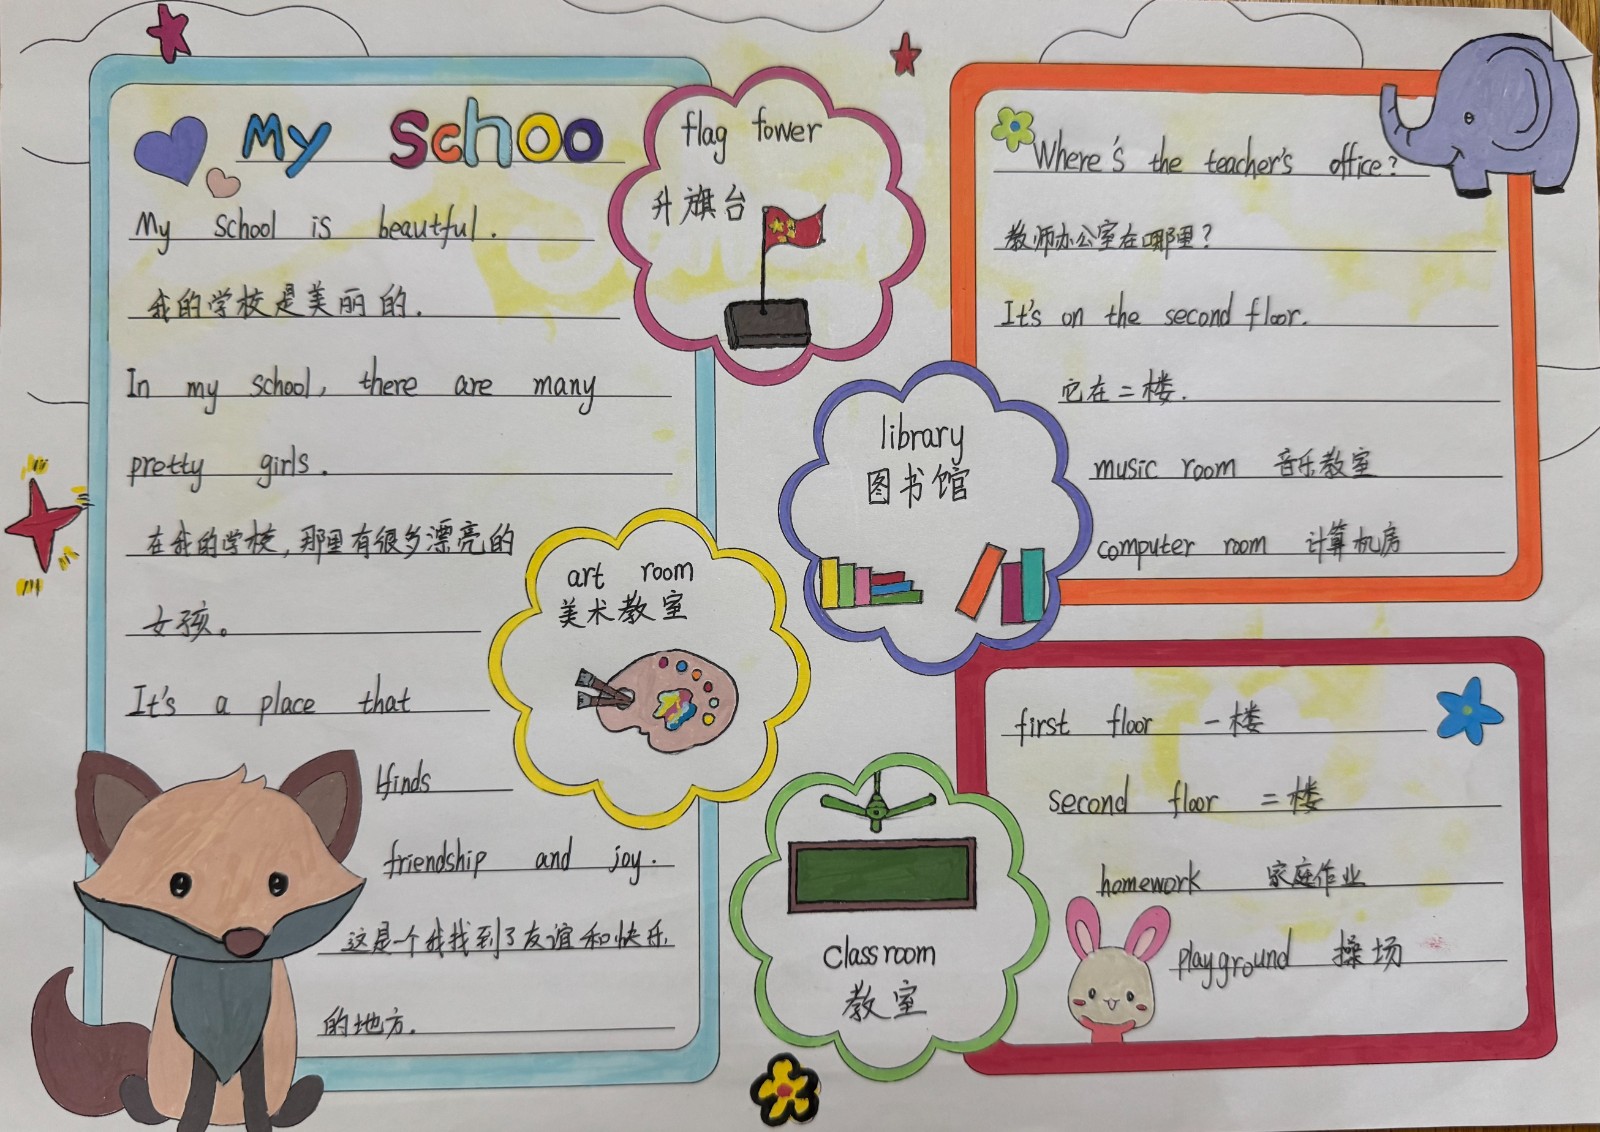 My SchOO
My school is beautful.
我的学校是美丽的.
In my school, there are many
pretty girls.
在我的学校,那里有很多漂亮的
女孩。
It's a place that
Ifinds
friendship and joy.
这是一个我找到了友谊和快乐
的地方.
flag fower
升旗台
art room
美术教室
library
图书馆
classroom
教室
Where's the teacher's office?
教师办公室在哪里?
It's on the second floor.
它在二楼.
music room 音乐教室
computer room 计算机房
first floor 一楼
second floor 二楼
homework 家庭作业
playground 操场